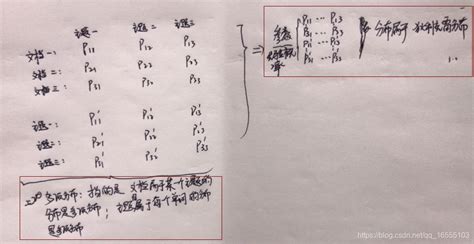 话题一 话题二 话题三
文档一: P11 P12 P13
文档二: P21 P22 P23
文档三: P31 P32 P33
话题一: P'11 P'12 P'13
话题二: P'21 P'22 P'23
话题三: P'31 P'32 P'33
=>
P11 ··· P13
P31 ··· P33
P'11 ··· P'13
P'31 ··· P'33
分布属于 狄利克雷分布
多项分布: 指的是 文档属于某个话题的
分布是多项分布; 话题属于每个单词的分布
是多项分布
https://blog.csdn.net/qq_16555103